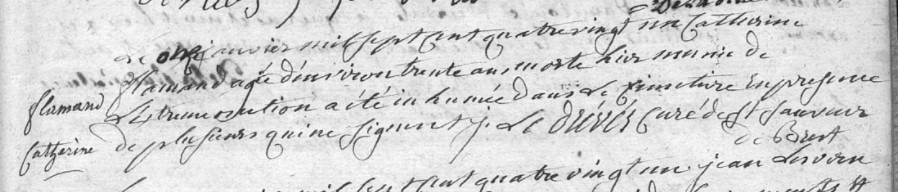 Le onze janvier mil sept cent quatre vingt un Catherine
flamand agée d'environ trente ans, morte hier munie de
flumand
L'Extremeonction a été inhumée dans Le Cimetiere En presence
Catherine
de plusieurs qui ne signent /. Le Dréves Curé de St Sauveur
de Brest
mil sept cent quatre vingt un jean